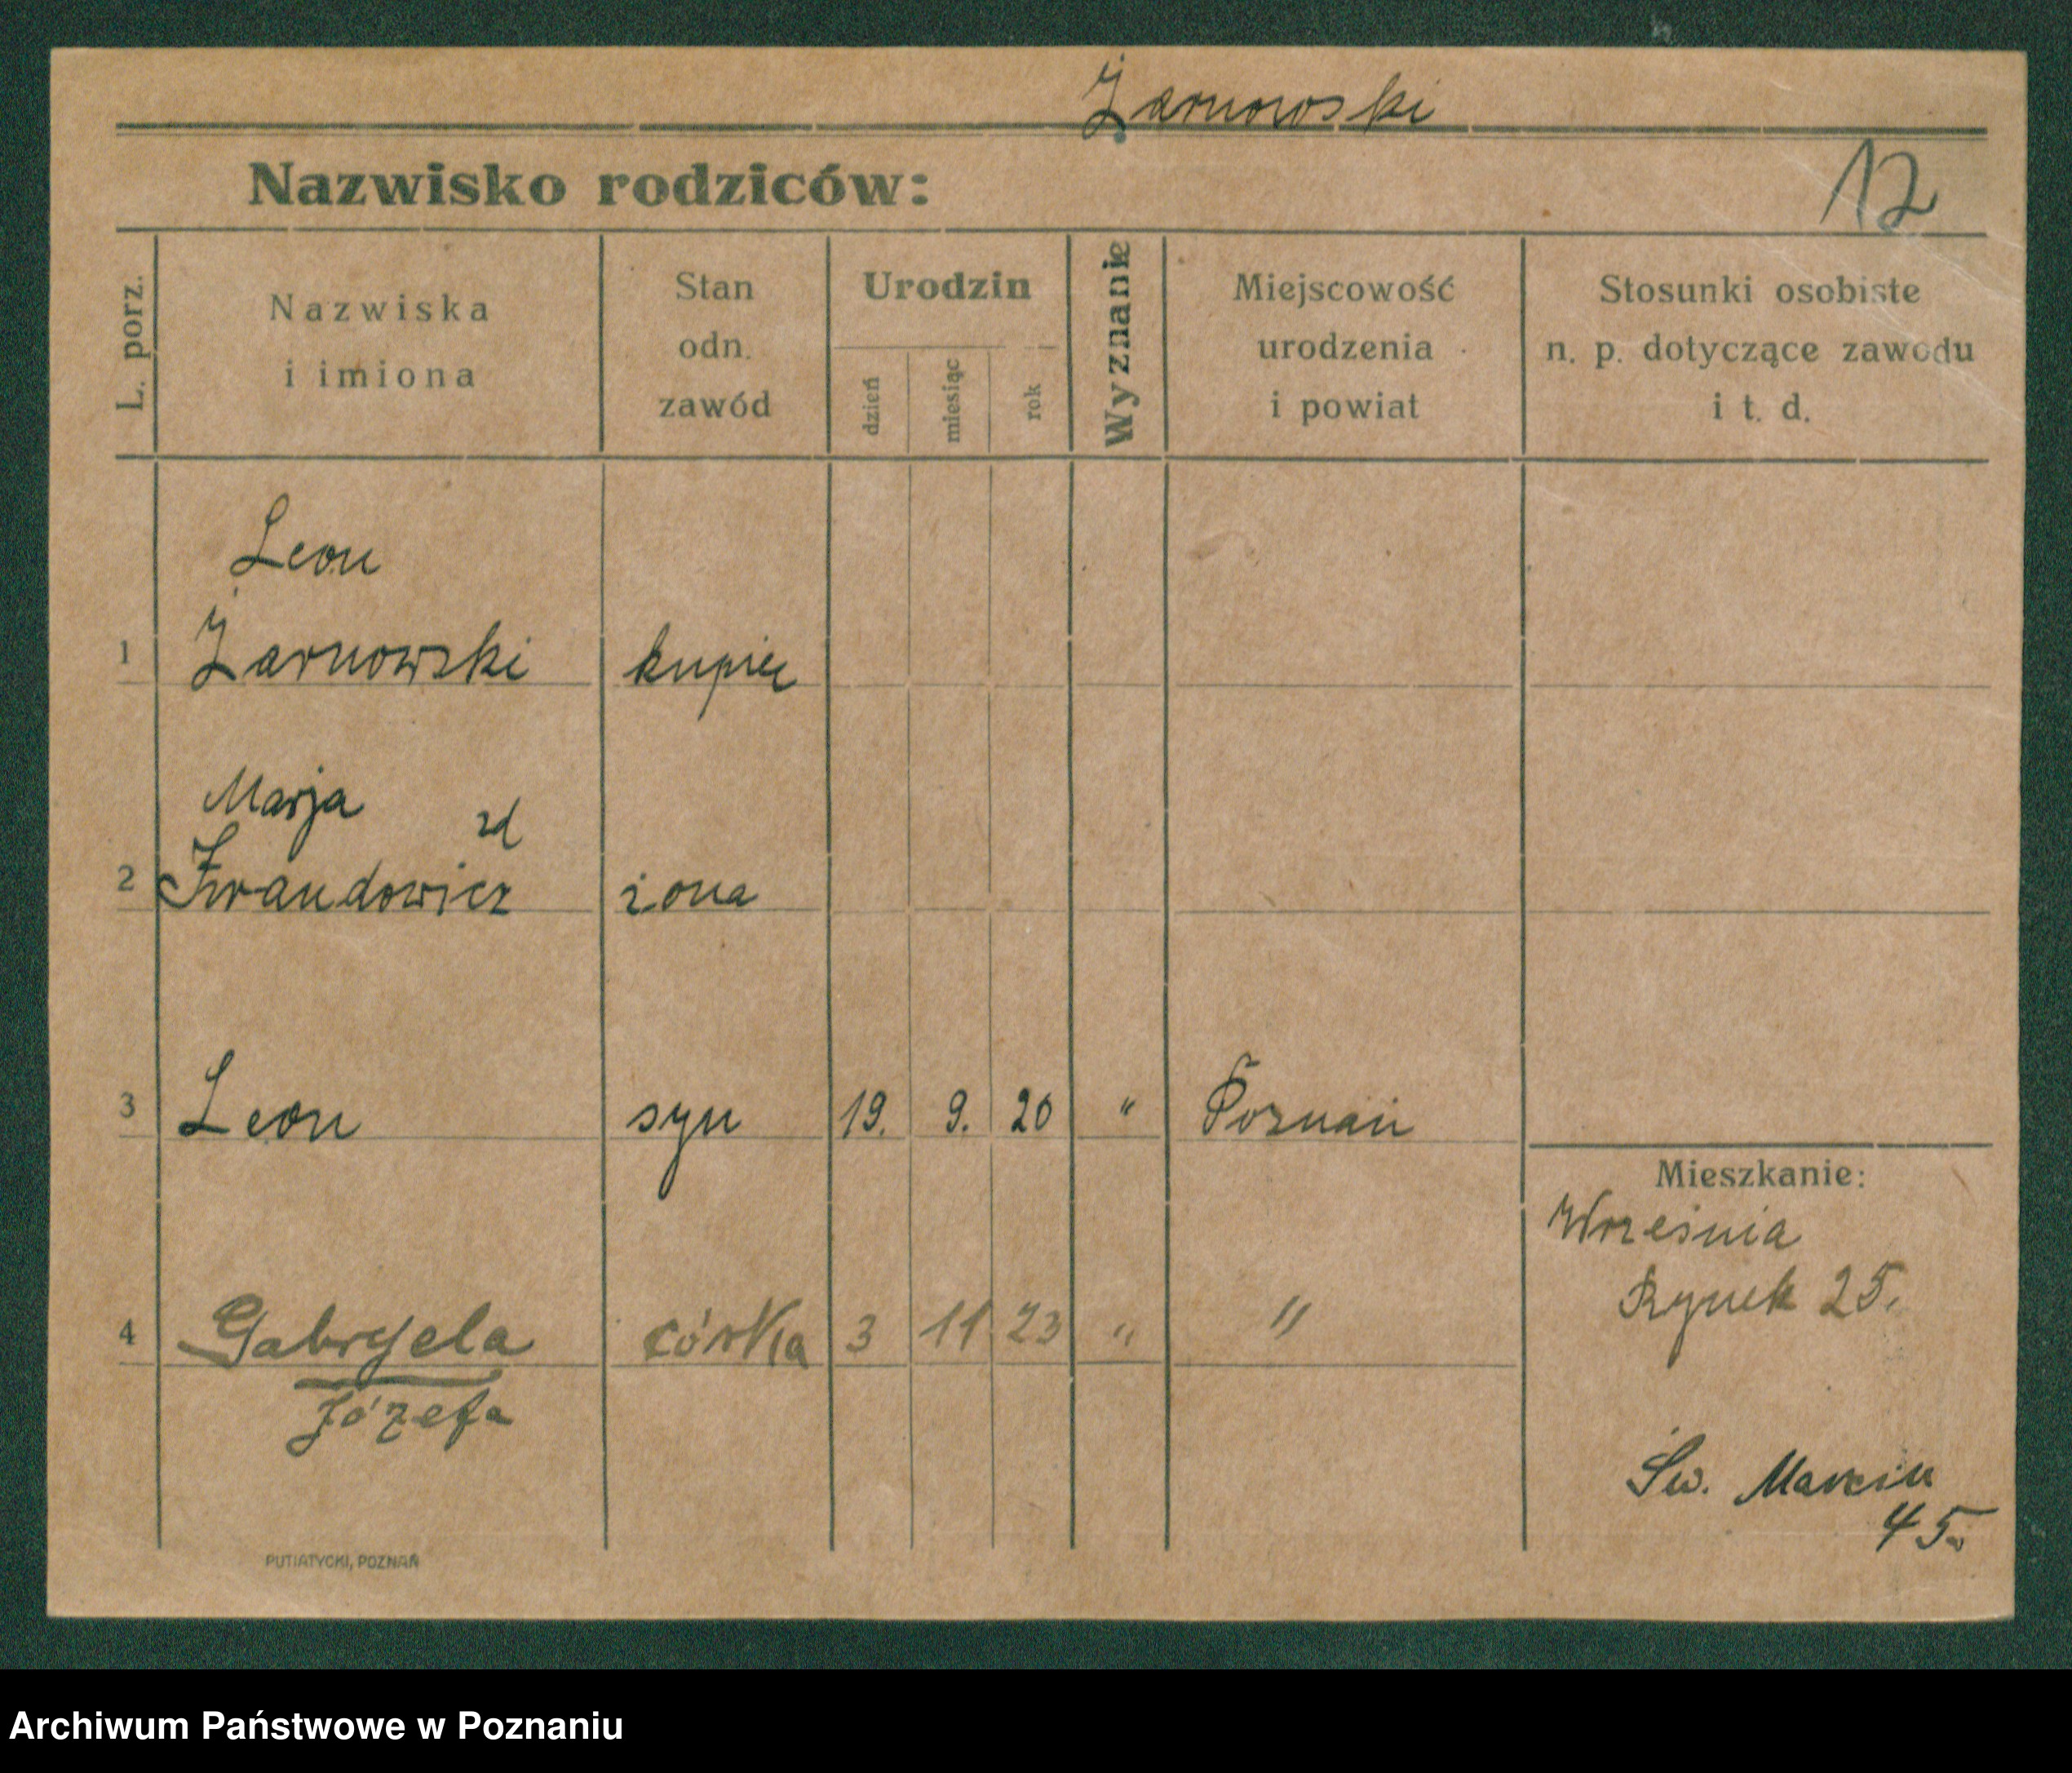 Żarnowski
Nazwisko rodziców:
12
L. porz.
Nazwiska
i imiona
Stan
odn.
zawód
Urodzin
dzień
miesiąc
rok
Wyznanie
Miejscowość
urodzenia
i powiat
Stosunki osobiste
n. p. dotyczące zawodu
i t. d.
Leon
1 Żarnowski kupiec
Marja zd
2 żona
3 Leon syn 19. 9. 20 " Poznań
Mieszkanie:
Września
Rynek 25.
4 Gabryela córka 3 11 23 " "
Józefa
Św. Marcin
45.
PUTIATYCKI, POZNAŃ
Archiwum Państwowe w Poznaniu